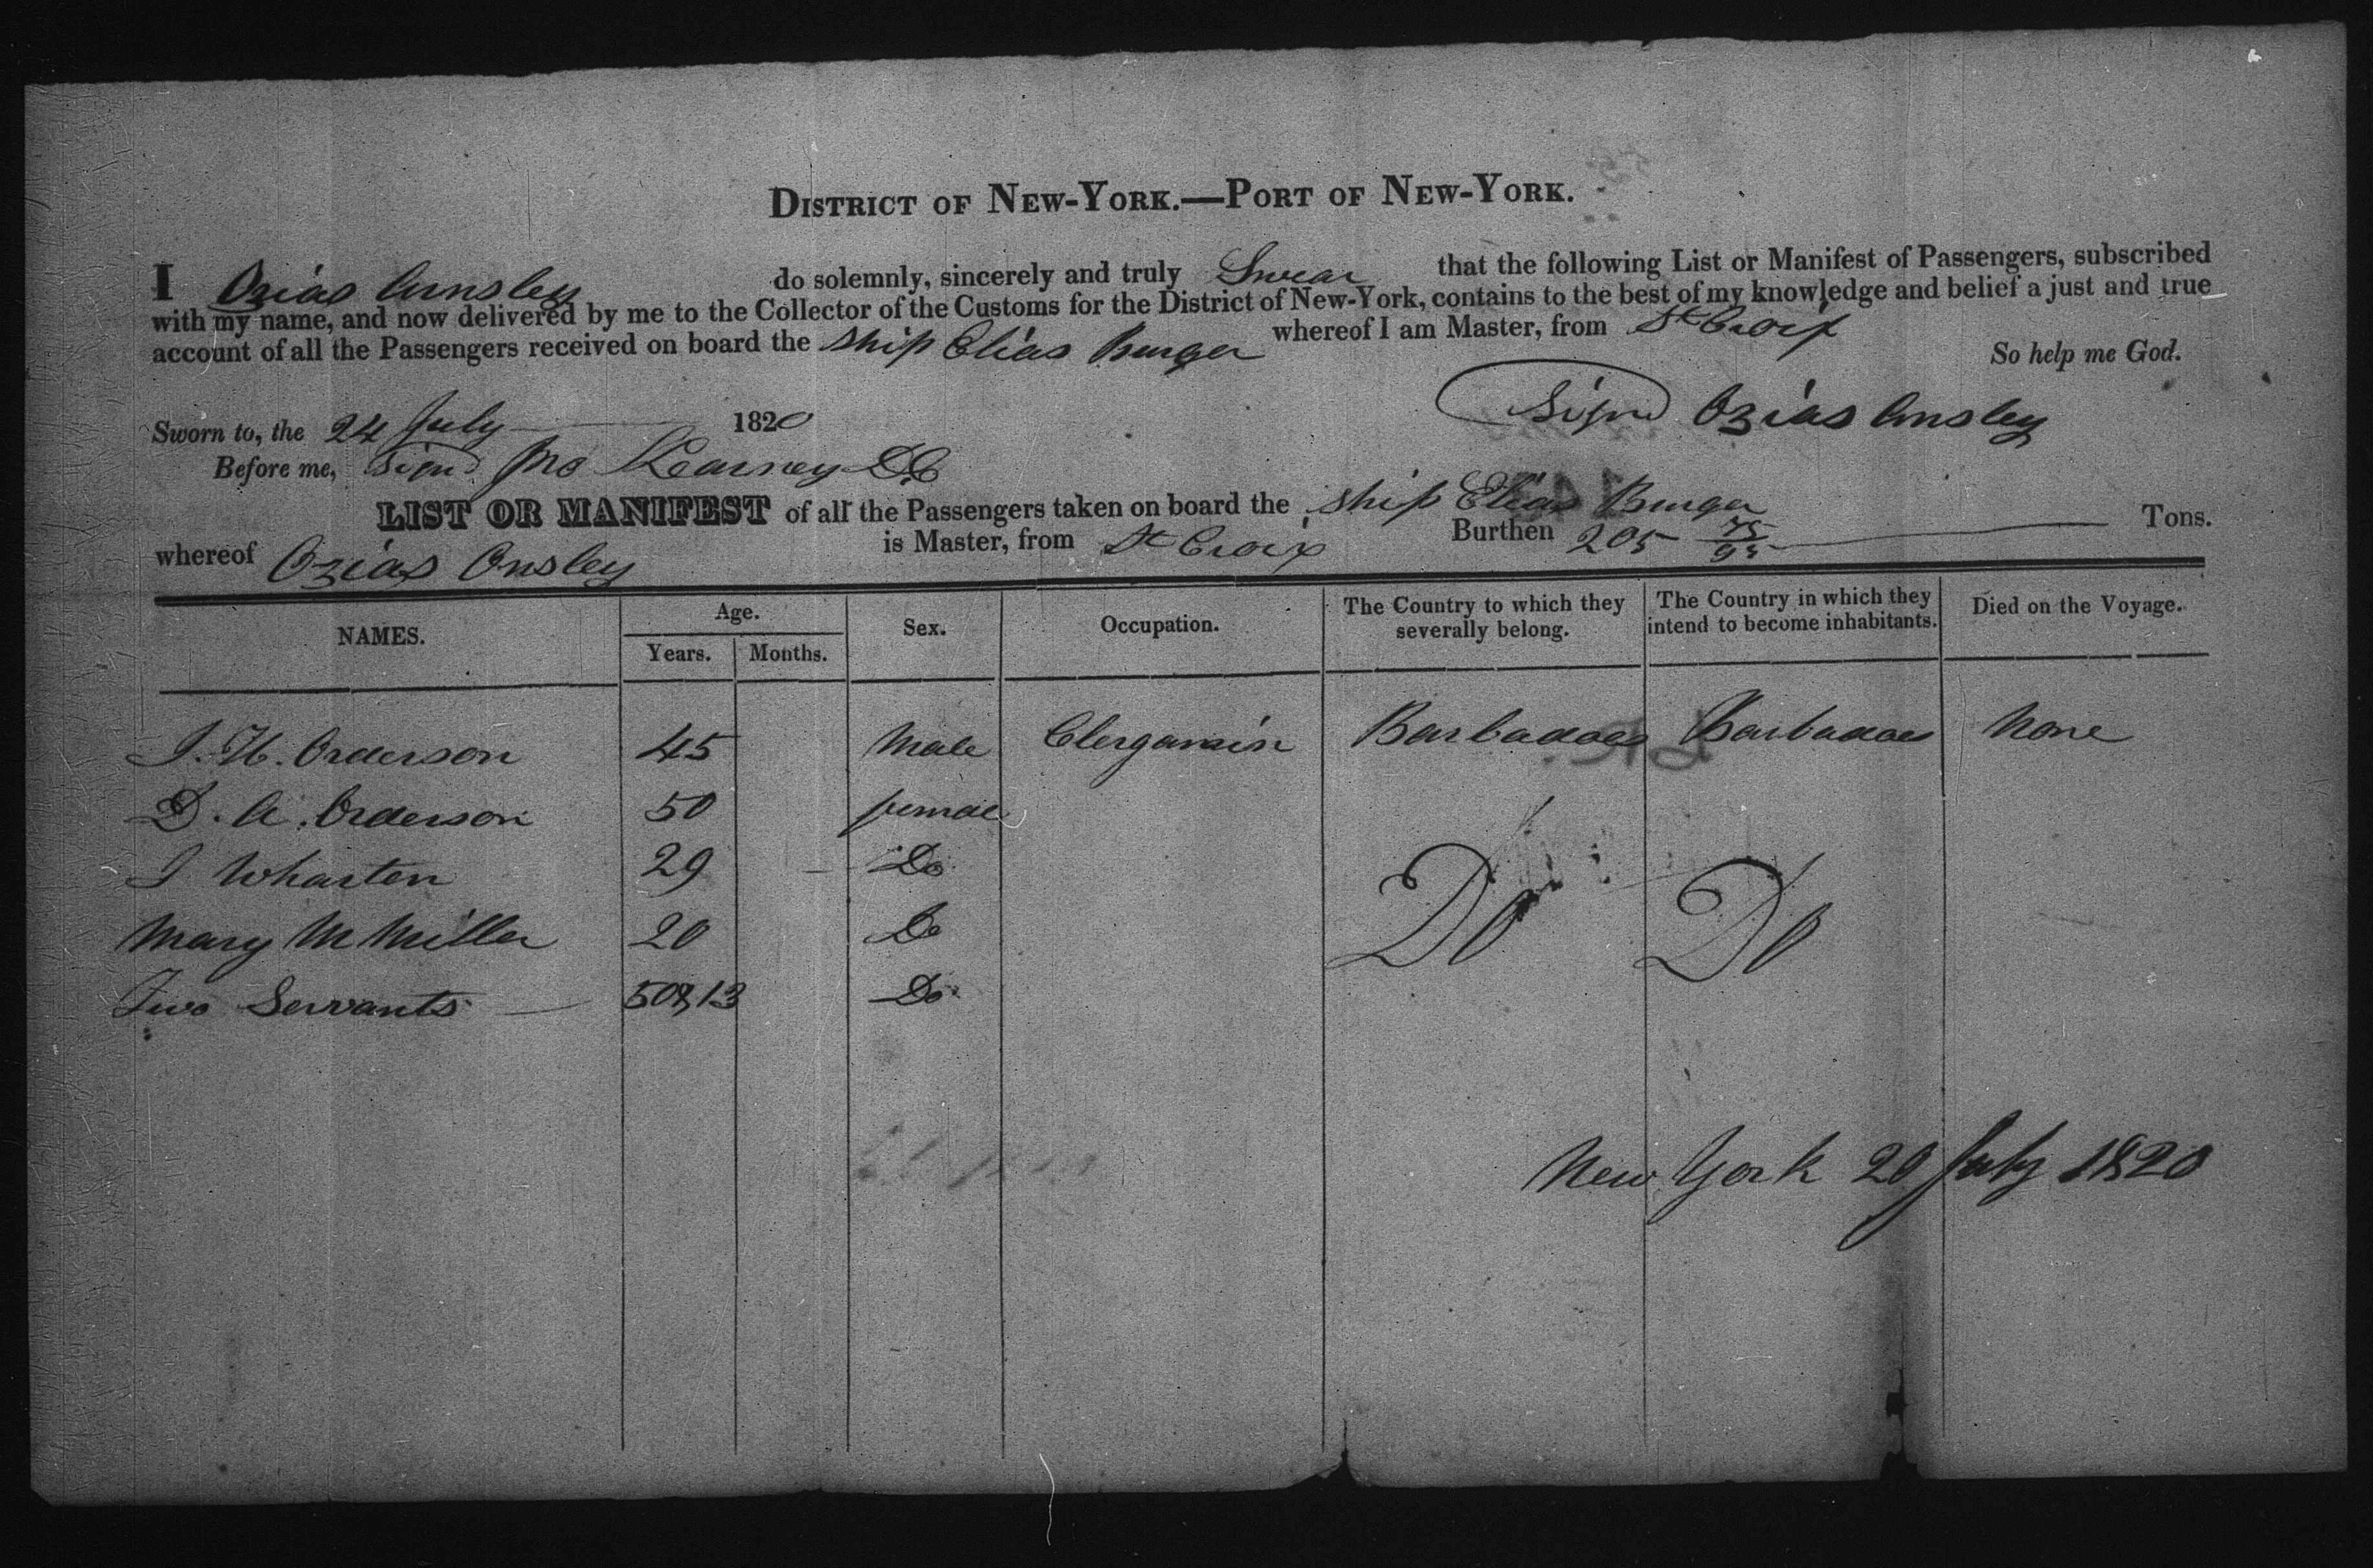 DISTRICT OF NEW-YORK.—PORT OF NEW-YORK.
I Ozias Ansley do solemnly, sincerely and truly Swear that the following List or Manifest of Passengers, subscribed
with my name, and now delivered by me to the Collector of the Customs for the District of New-York, contains to the best of my knowledge and belief a just and true
account of all the Passengers received on board the Ship Elias Burger whereof I am Master, from St Croix
So help me God.
Signd Ozias Ansley
Sworn to, the 24 July 1820
Before me, Signd Jno Kearney DC
LIST OR MANIFEST of all the Passengers taken on board the Ship Elias Burger
whereof Ozias Onsley is Master, from St Croix Burthen 205 75/95 Tons.
NAMES. Age. Years. Months. Sex. Occupation. The Country to which they severally belong. The Country in which they intend to become inhabitants. Died on the Voyage.
J. H. Orderson 45 Male Clergamin Barbadoes Barbadoes None
D. A. Orderson 50 female
J Wharten 29 Do
Mary M Miller 20 Do Do Do
Two Servants 50 & 13 Do
New York 20 July 1820